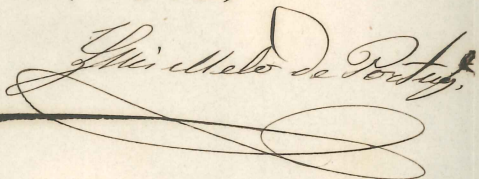 Luis Melo de Portug.